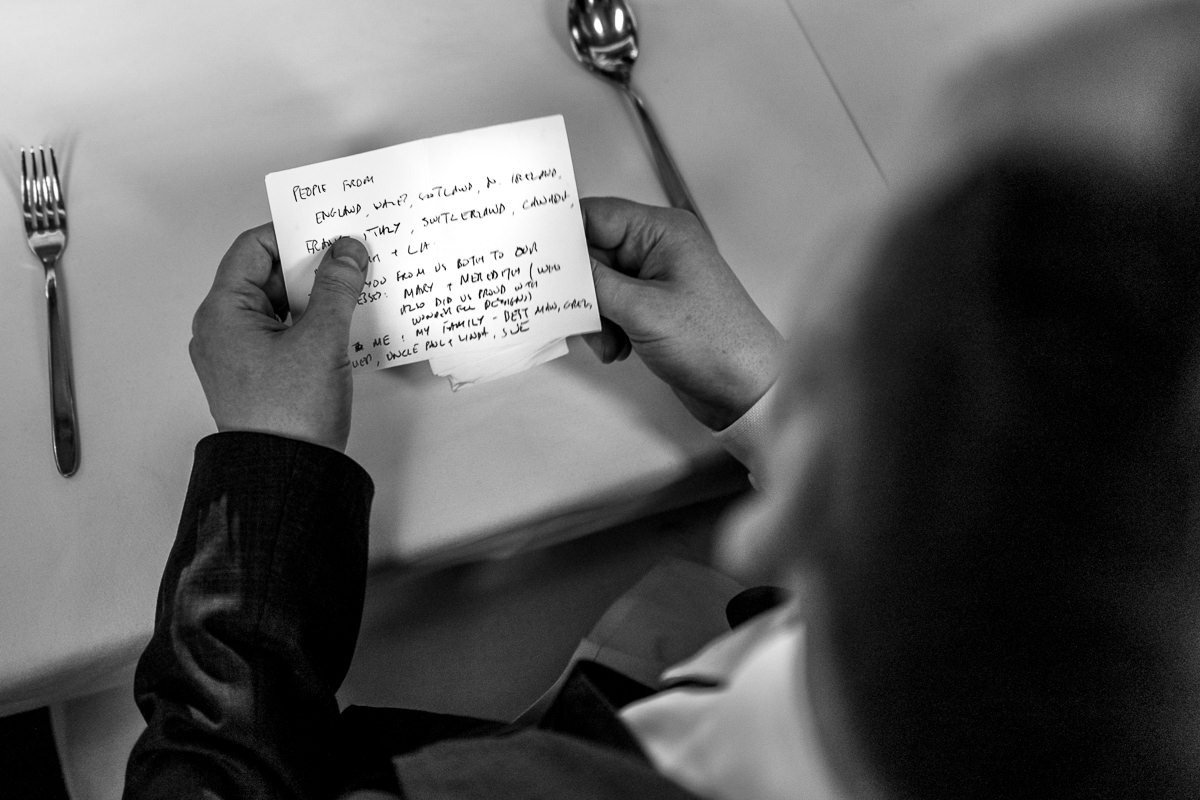 PEOPLE FROM
ENGLAND, WALES, SCOTLAND, N. IRELAND,
FRANCE, ITALY, SWITZERLAND, CANADA,
+ LA
YOU FROM US BOTH TO OUR
MARY + MEREDITH (WHO
ALSO DID US PROUD WITH
WONDERFUL DESIGNS)
ME : MY FAMILY - BEST MAN, GREG,
UNCLE PAUL + LINDA, SUE